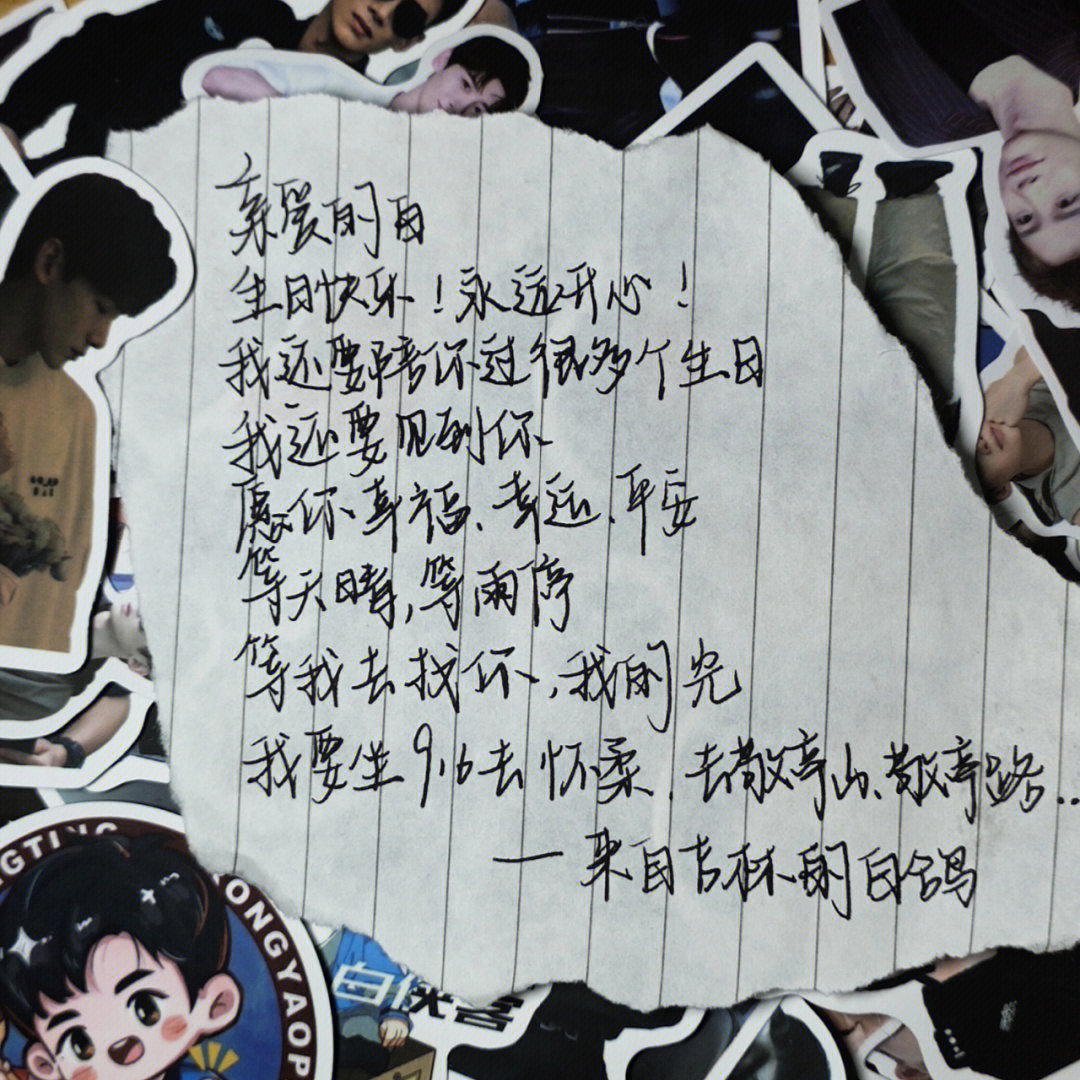 亲爱的白
生日快乐！永远开心！
我还要陪你过很多个生日
我还要见到你
愿你幸福、幸运、平安
等天晴，等雨停
等我去找你，我的光
我要坐9.6去怀柔、去敬亭山、敬亭路...
——来自吉林的白鸽
NGTING
ONGYAOP
白侠客